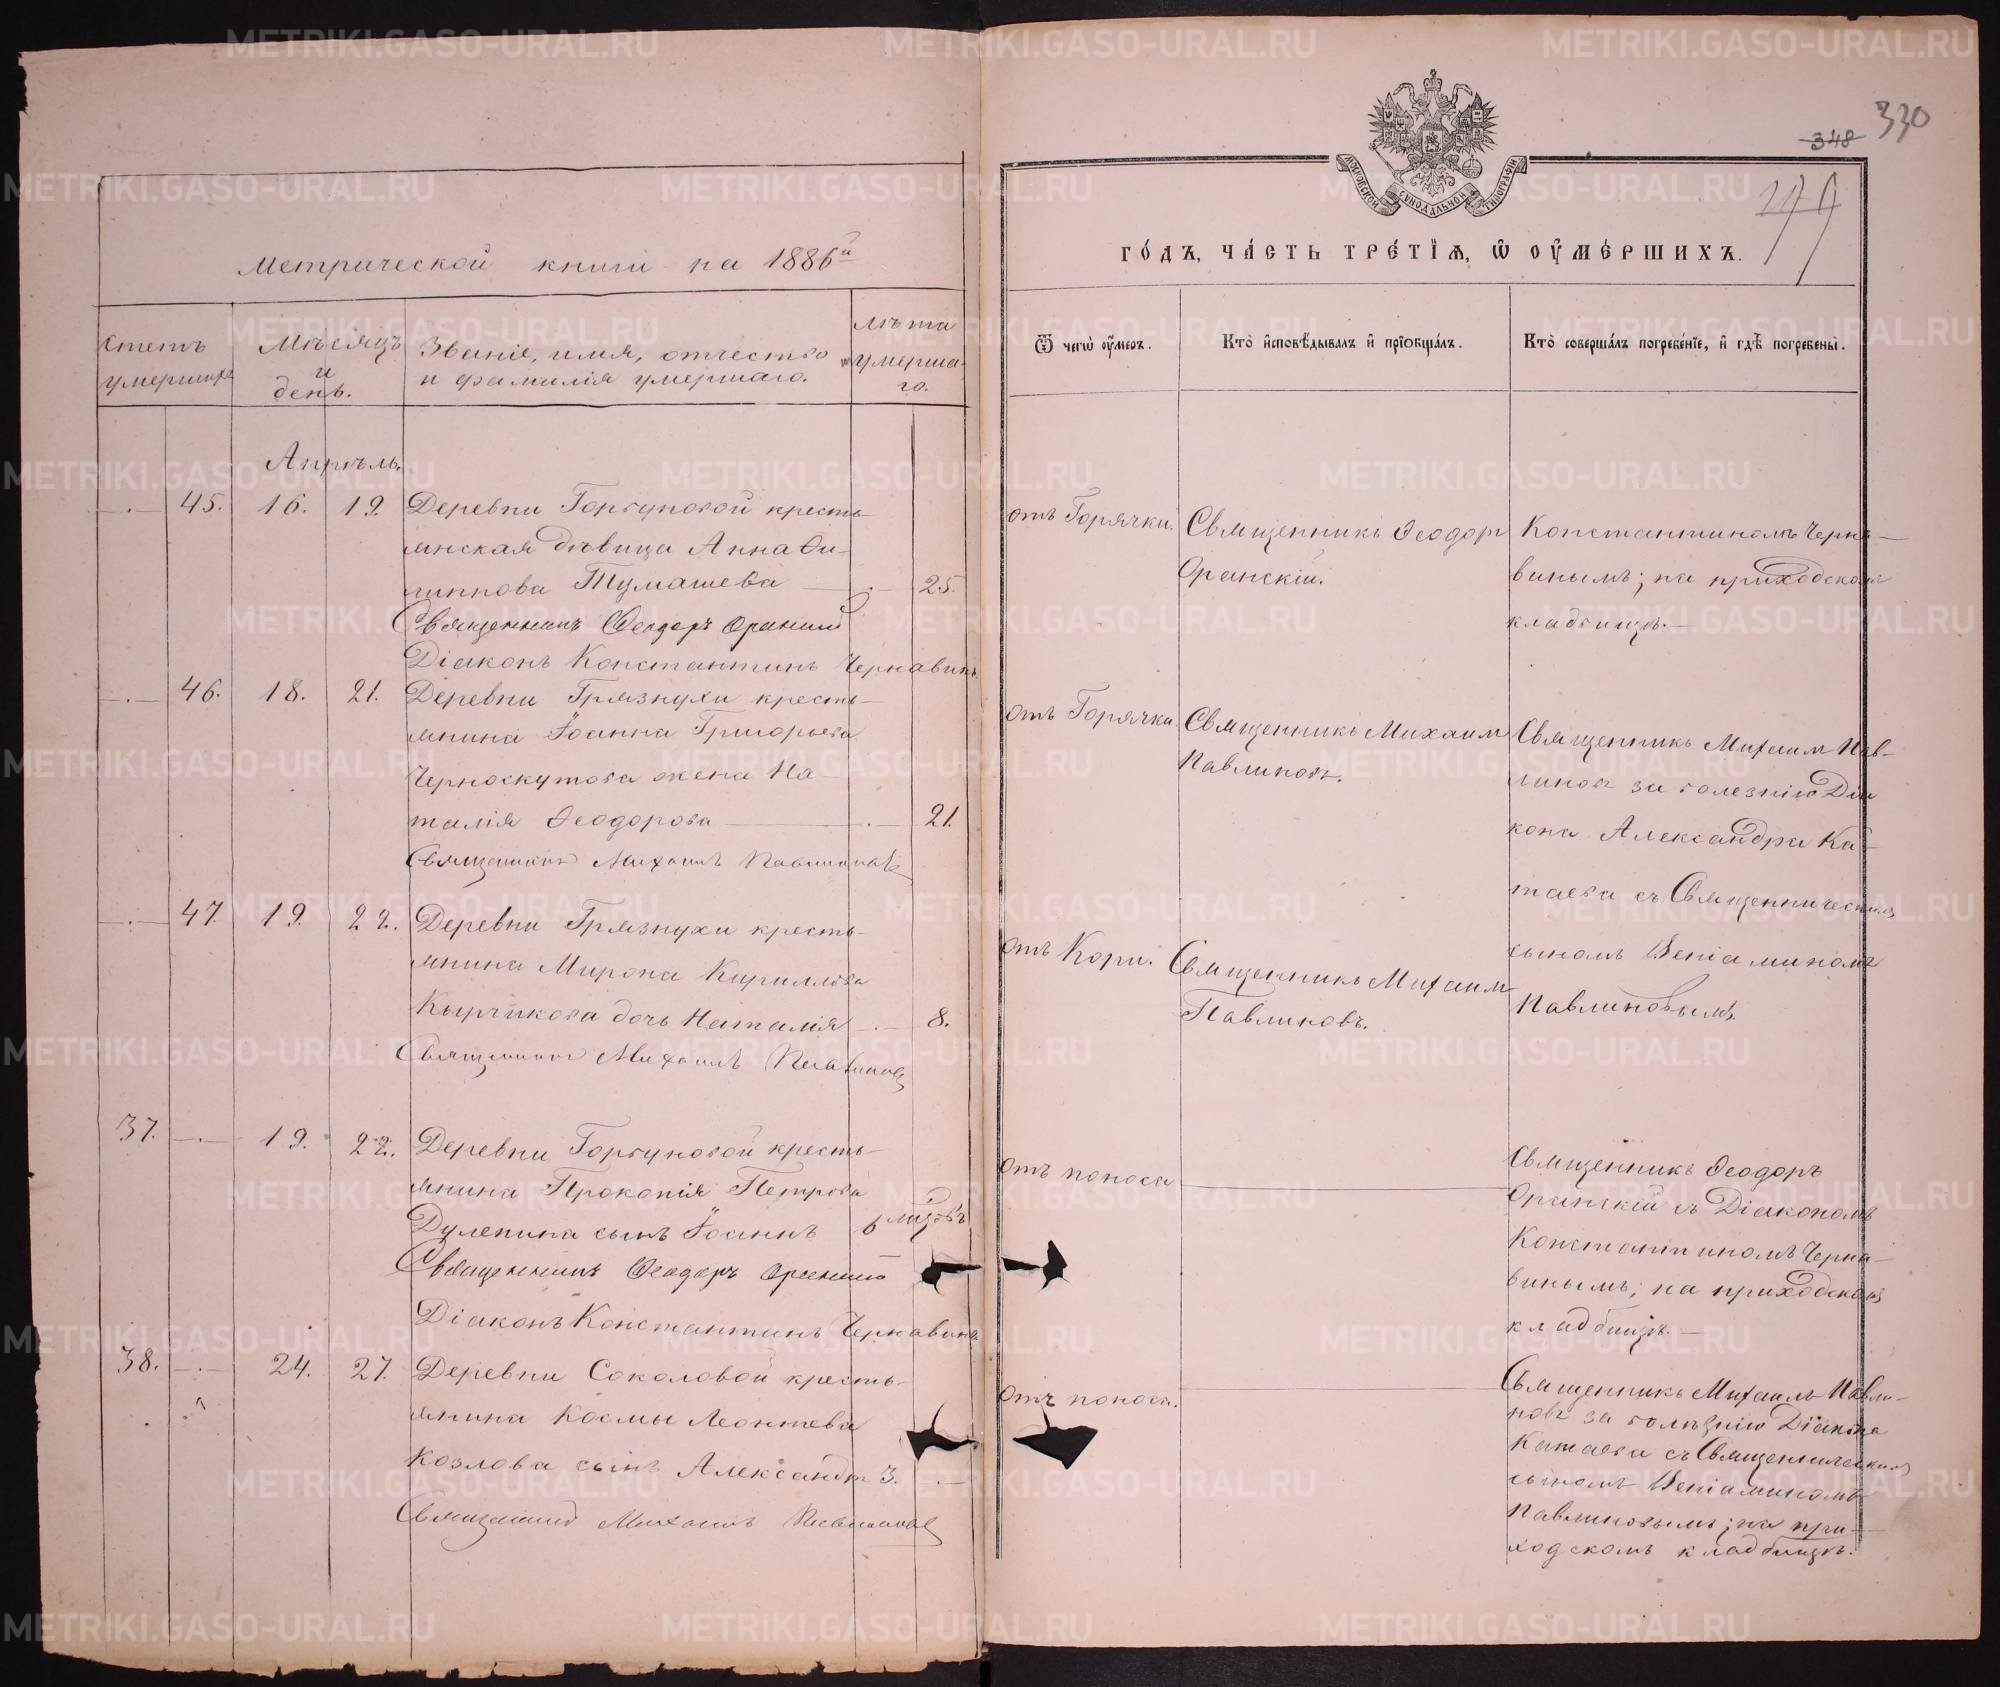 Метрической книги на 1886й
Счетъ умершихъ
Мѣсяцъ и день.
Званіе, имя, отчество и фамилія умершаго.
Лѣта умершаго.
Апрѣль.
—.— 45. 16. 19. Деревни Горбуновой кресть-
янская дѣвица Анна Фи-
липпова Тумашева —.— 25.
Священникъ Ѳеодоръ Оранскій
Діаконъ Константинъ Чернавинъ
—.— 46. 18. 21. Деревни Грязнухи кресть-
янина Іоанна Григорьева
Черноскутова жена На-
талія Ѳеодорова —.— 21.
Священникъ Михаилъ Павлиновъ
—.— 47. 19. 22. Деревни Грязнухи кресть-
янина Мирона Кириллова
Кырчикова дочь Наталія —.— 8.
Священникъ Михаилъ Павлиновъ
37. —.— 19. 22. Деревни Горбуновой кресть-
янина Прокопія Петрова
Дулепина сынъ Іоаннъ 6
Священникъ Ѳеодоръ Оранскій
Діаконъ Константинъ Чернавинъ
38. —.— 24. 27. Деревни Соколовой кресть-
янина Космы Леонтьева
Козлова сынъ Александръ 3. —.—
Священникъ Михаилъ Павлиновъ
348 330
МОСКОВСКОЙ СѴНОДАЛЬНОЙ ТИПОГРАФІИ
ГО́ДЪ, ЧА́СТЬ ТРЕ́ТІѦ, Ѽ ОУ҆МЕ́РШИХЪ.
Ѿ чегѡ̀ оу҆́меръ.
Кто̀ и҆сповѣ́дывалъ и҆ прїѡбща́лъ.
Кто̀ соверша́лъ погребе́нїе, и҆ гдѣ̀ погребены̀.
отъ Горячки.
Священникъ Ѳеодоръ
Оранскій.
Константиномъ Черна-
винымъ; на приходскомъ
кладбищѣ.—
отъ Горячки.
Священникъ Михаилъ
Павлиновъ.
Священникъ Михаилъ Пав-
линовъ за болезнію Діа
кона Александра Ка-
таева съ Священническимъ
сыномъ Веніаминомъ
Павлиновымъ.
отъ Кори.
Священникъ Михаилъ
Павлиновъ.
отъ поноса
Священникъ Ѳеодоръ
Оранскій съ Діакономъ
Константиномъ Черна-
винымъ; на приходскомъ
кладбищѣ.—
отъ поноса.
Священникъ Михаилъ Павли-
новъ за болѣзнію Діакона
Катаева съ Священническимъ
сыномъ Веніаминомъ
Павлиновымъ; на при-
ходскомъ кладбищѣ.
METRIKI.GASO-URAL.RU